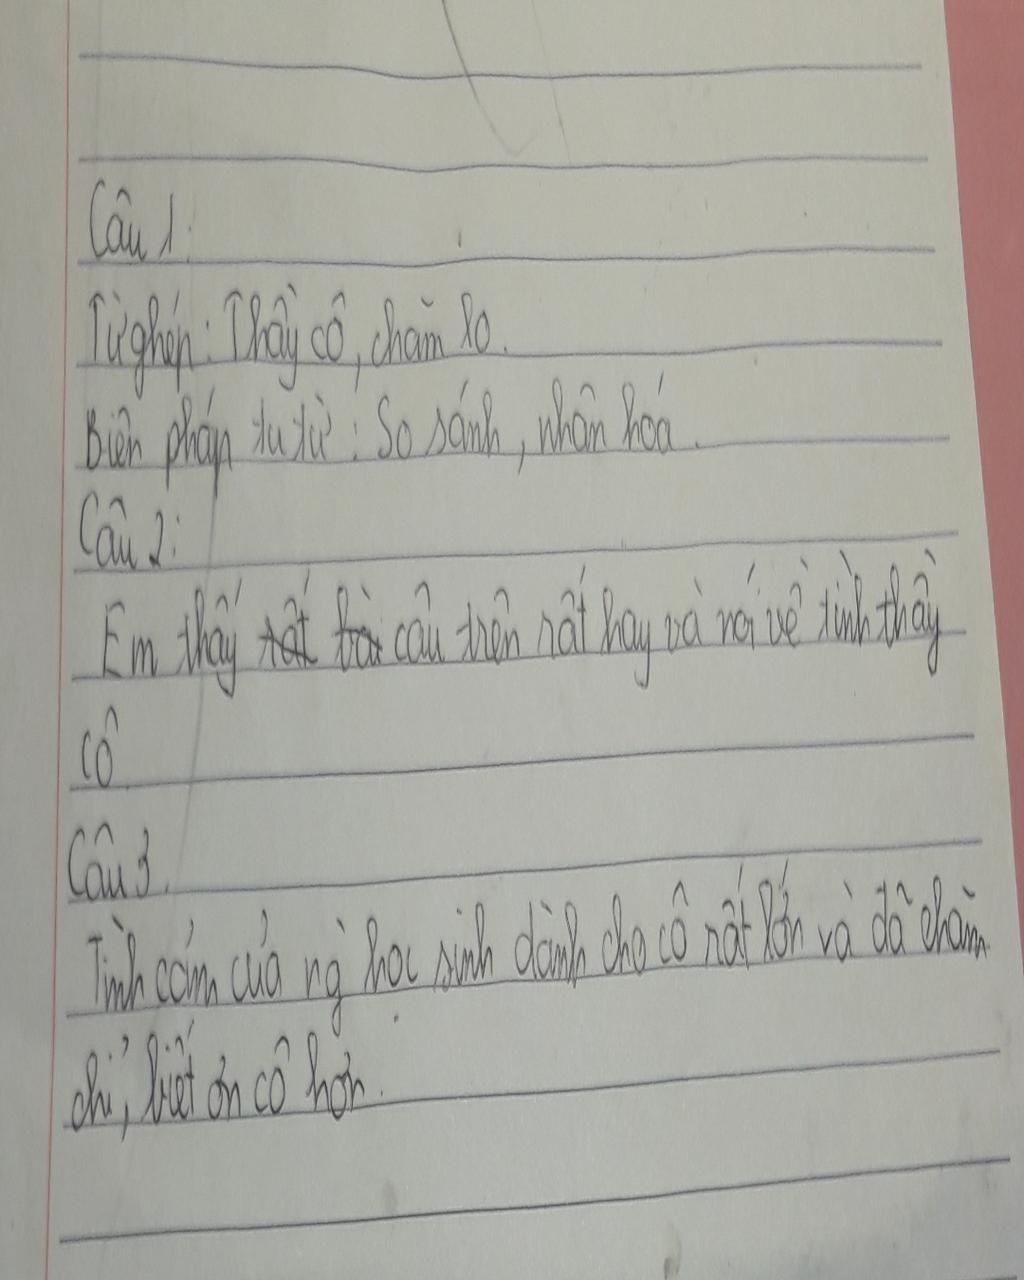 Câu 1:
Từ ghép: Thầy cô, chăm lo.
Biện pháp tu từ: So sánh, nhân hoá.
Câu 2:
Em thấy rất bài câu trên rất hay và nói về tình thầy
cô
Câu 3.
Tình cảm của ng học sinh dành cho cô rất lớn và đã chăm
chỉ, biết ơn cô hơn.